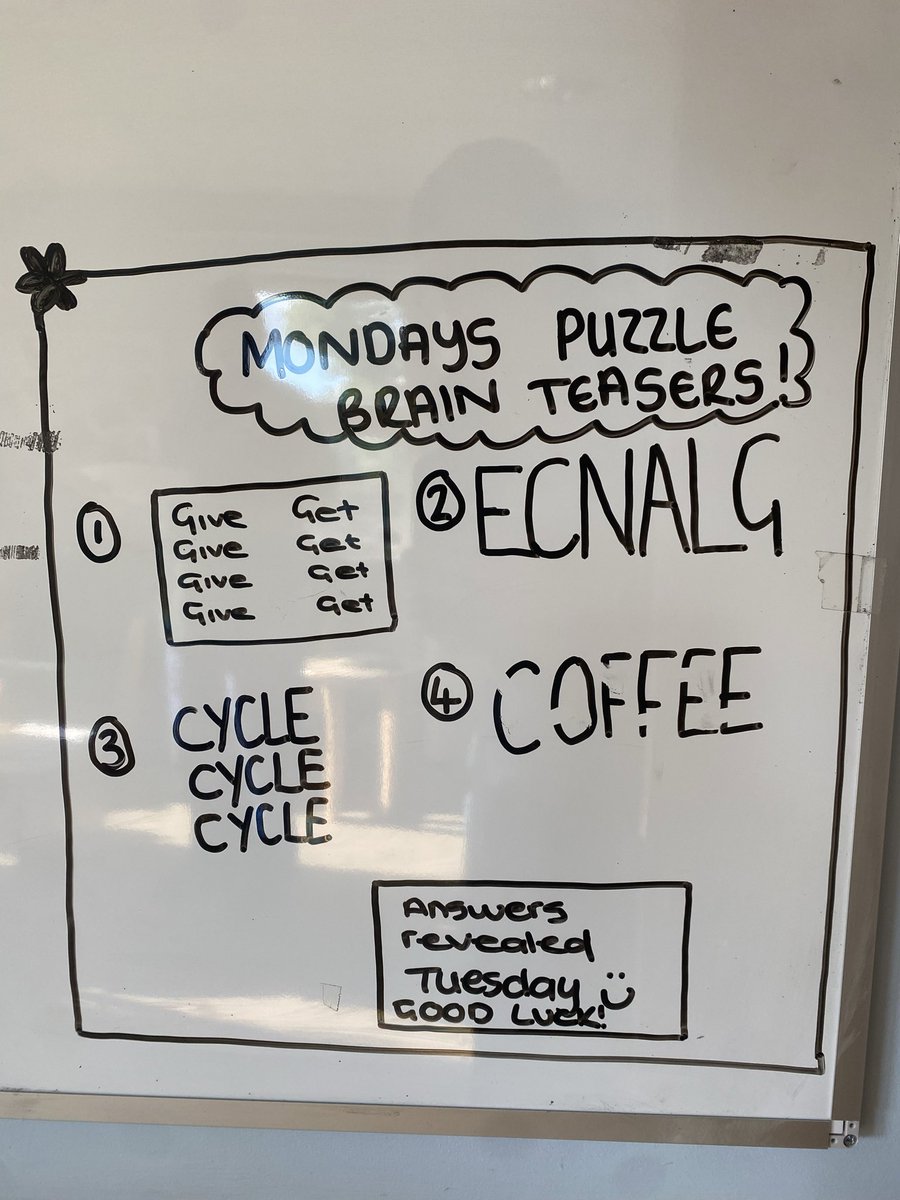 MONDAYS PUZZLE
BRAIN TEASERS!
1
Give Get
Give Get
Give Get
Give Get
2 ECNALG
3
CYCLE
CYCLE
CYCLE
4 COFFEE
Answers
revealed
Tuesday
GOOD LUCK!